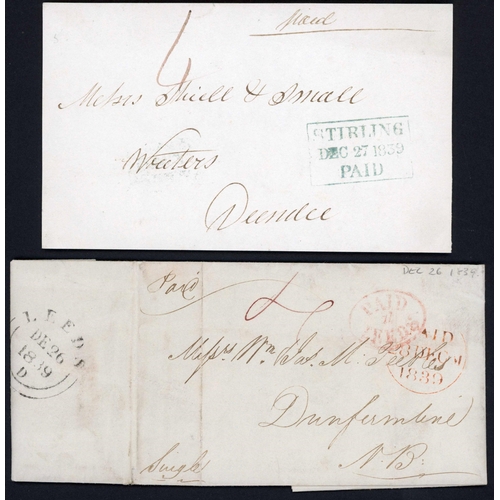 Paid
4
Messrs Shiell & Small
Writers
Dundee
STIRLING
DEC 27 1839
PAID
DEC 26 1839
Paid
LEEDS
DE 26
1839
D
PAID
LEEDS
PAID
DEC
1839
Messrs Wm & Jas. Mc
Dunfermline
N.B.
Single